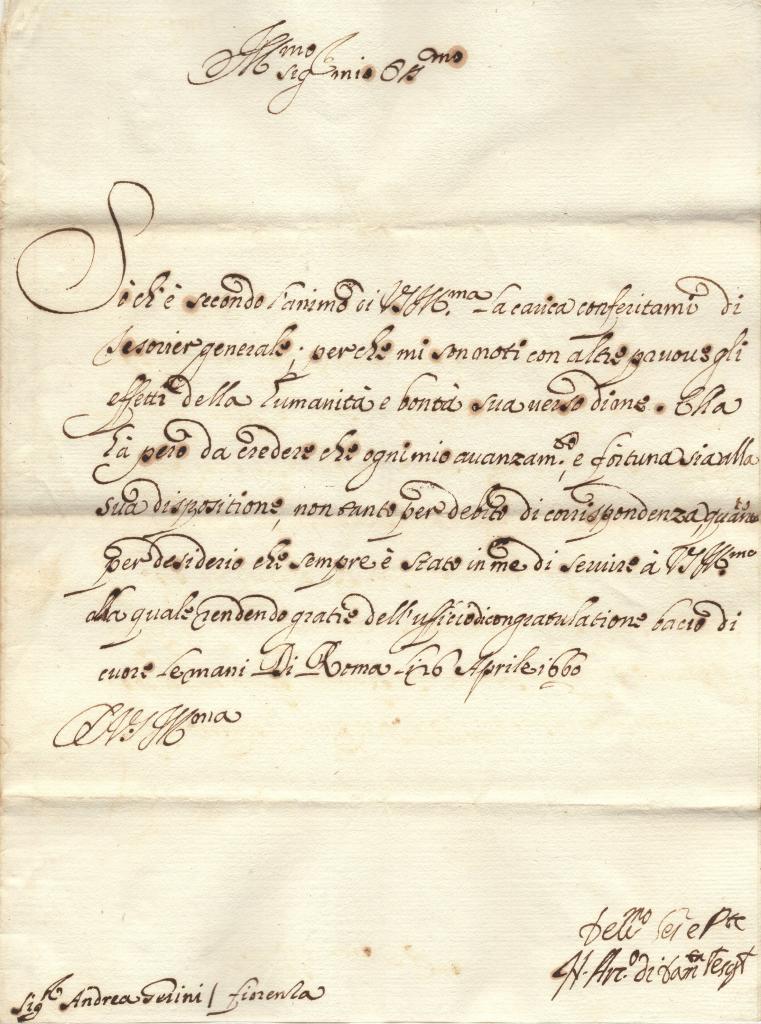 Ill.mo Sig.r mio Oss.mo
Sò ch'è secondo l'animo di V.S. Ill.ma la carica conferitami di
Tesorier generale; perche mi son noti con altre pruoue gli
effetti della humanità e bontà sua verso di me. Ella
hà però da credere che ogni mio auanzam.to, e fortuna sia alla
sua dispositione, non tanto per debito di corrispondenza, quãto
per desiderio che sempre è stato in me di seruire à V.S. Ill.ma
alla quale rendendo gratie dell'ufficio di congratulatione bacio di
cuore le mani Di Roma li 26 Aprile 1660
Di V.S. Ill.ma
Sig.r Andrea / Fiorenza
Ser.e
Arc.o di